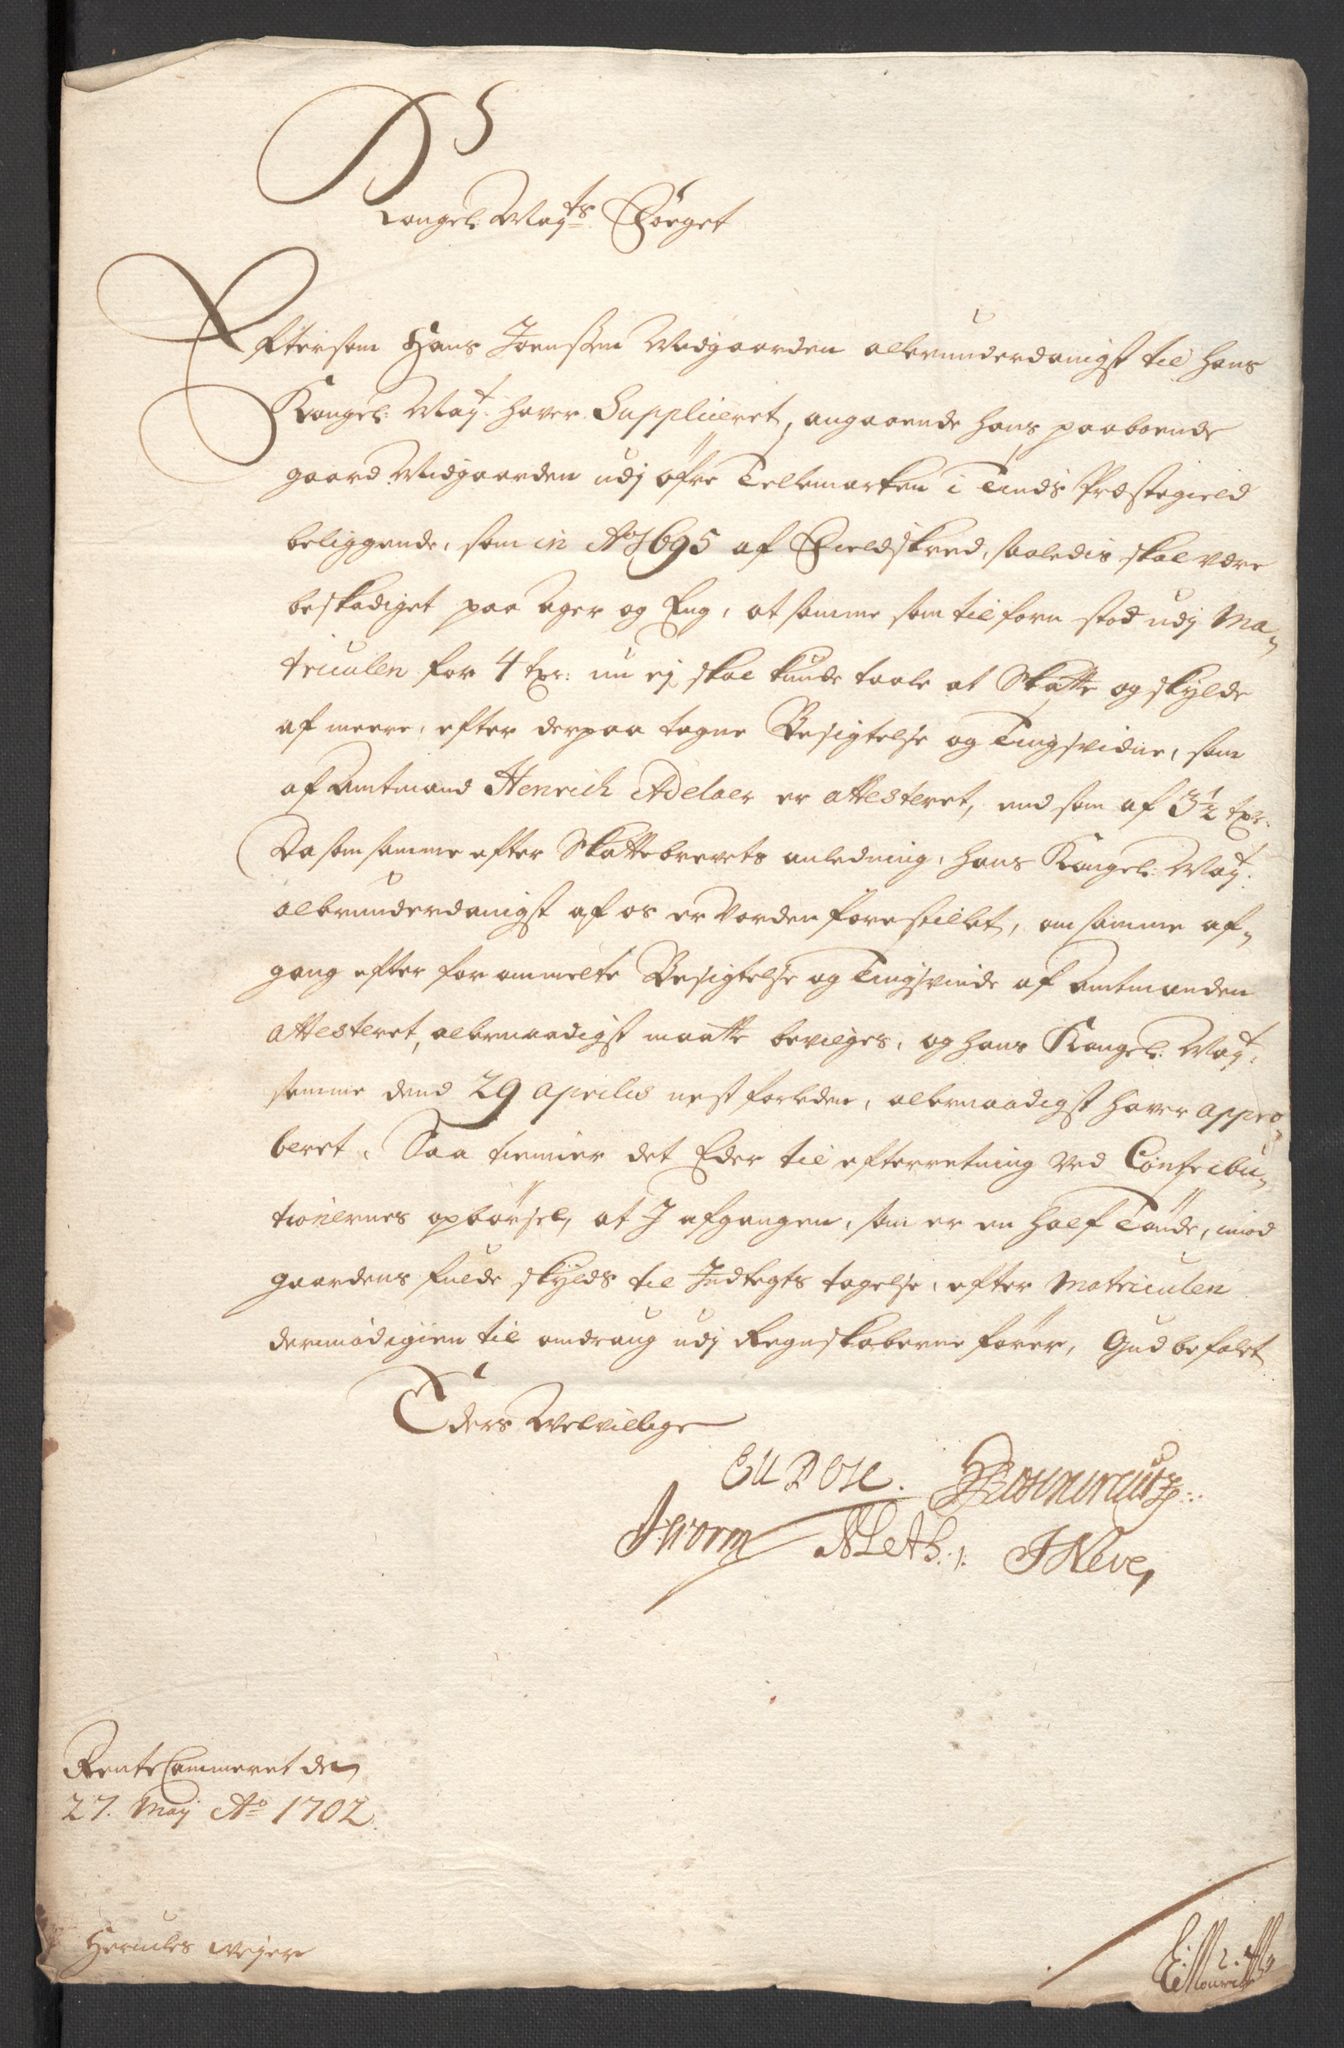 Kongel: May:ts Foeget
Eftersom Hans Joenssen Midgaarden allerunderdanigst til Hans
Kongel: May:t hafver Suppliceret, angaaende hans paaboende
gaard Midgaarden udj öfre Tellemarken i Tinds Præstegield
beliggende, som in Ao 1695 af Fieldskred, saaledis skal være
beskadiget paa ager og Eng, at samme som tilforn stod udj Ma-
triculen for 4 tdr: nu ej skal kunde taale at Skatte og skylde
af meere, efter derpaa tagne Besigtelse og Tingsvidne, som
af Amtmand Henrich Adelaer er attesteret, end som af 3½ tdr.
Da som samme efter Skattebrevets anledning, Hans Kongel: May:t
allerunderdanigst af os er vorden forestillet, om samme af-
gang efter forommelte Besigtelse og Tingsvinde af Amtmanden
attesteret, allernaadigst maatte bevilges, og Hans Kongel: May:t
samme dend 29 aprilis nest forleden, allernaadigst hafver appro-
beret, Saa tienner det Eder til efterretning ved Contribu-
tionernes opbörsel, at J afgangen, som er en half Tönde, imod
gaardens fulde skylds til Indtegts tagelse, efter Matriculen
dermod igien til omdraug udj Regnskaberne förer, Gud befalet
Eders Velvillige
J Worm NLeth. J Neve,
Rente Cammeret den
27. Maij Ao 1702.
Hercules Weyer